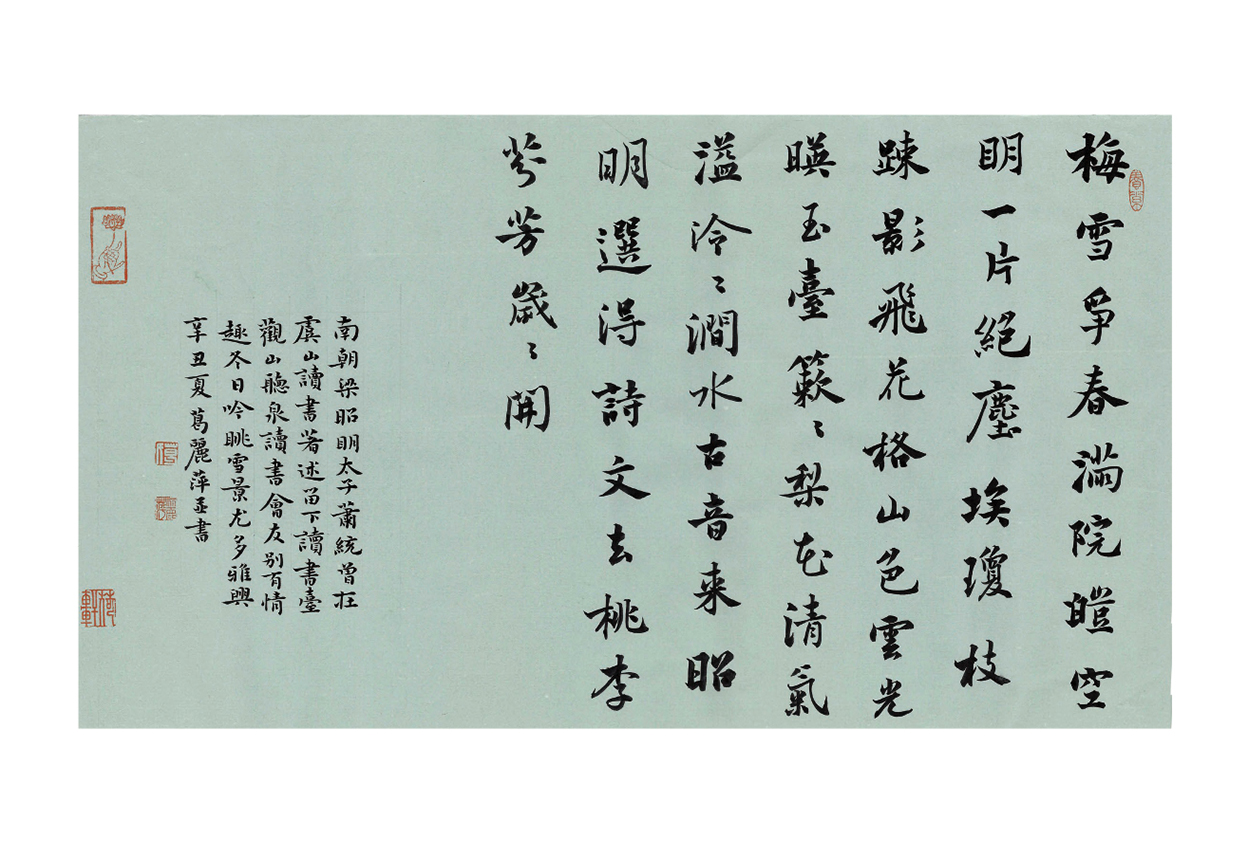 梅雪爭春滿院皚空
明一片絕塵埃瓊枝
疎影飛花格山色雲光
暎玉臺簌〻梨花清氣
溢泠〻澗水古音来昭
明選得詩文去桃李
芳歲〻開
南朝梁昭明太子蕭統曾在
虞山讀書著述留下讀書臺
觀山聽泉讀書會友别有情
趣冬日吟眺雪景尤多雅興
辛丑夏葛麗萍並書